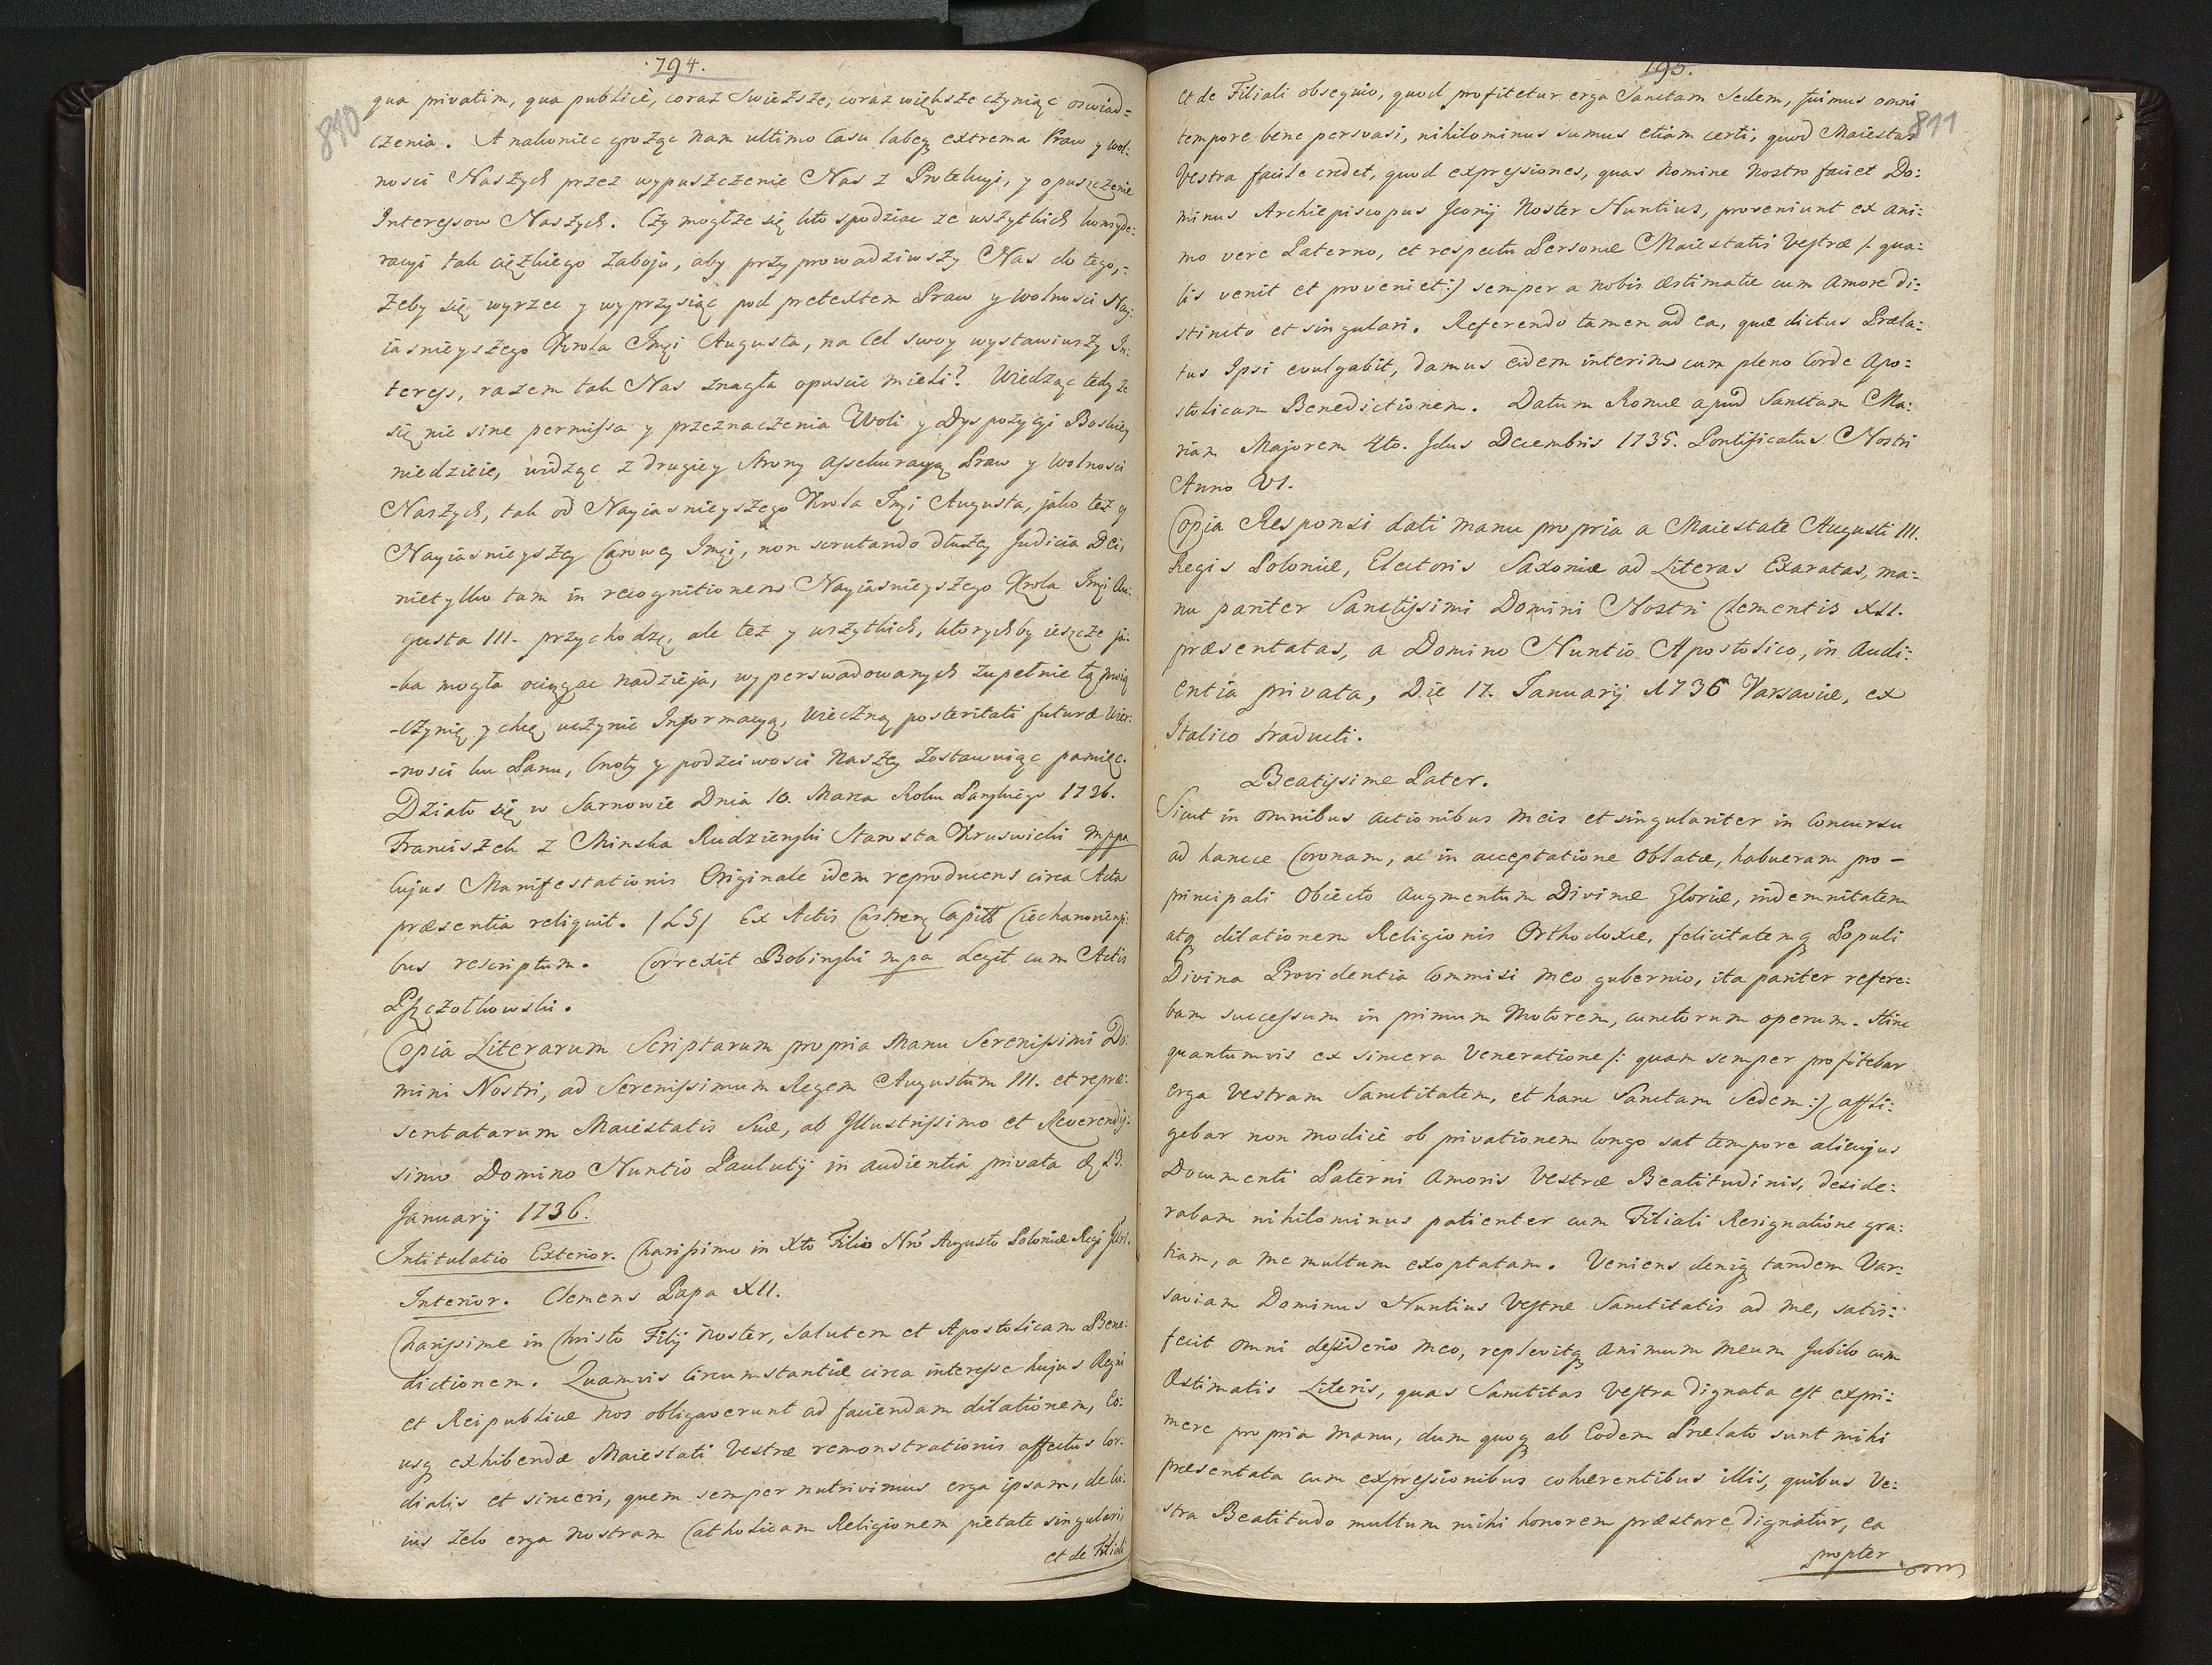 794.
810
qua privatim, qua publicè, coraz swieższe, coraz większe czyniąc oswiad=
czenia. A nakoniec grożąc nam ultimo casu labeq extrema Praw y wol:
nosci Naszych przez wypuszczenie Nas z Protekcyi, y opuszczenie
Interessow Naszych. Czy mogłze się kto spodziac ze wszytkich konsyde:
racyi tak cięzkiego zaboju, aby przyprowadziwszy Nas do tego,=
żeby się wyrzec y wyprzysiąc pod pretextem Praw y Wolnosci Nay:
iasnieyszego Krola Jmęi Augusta, na cel swoy wystawiwszy In:
teress, razem tak Nas znagła opuscic mieli? Wiedząc tedy ze
się nic sine permissa y przeznaczenia Woli y Dyspozycyi Boskiey
niedzieie, widząc z drugiey strony assekuracyą Praw y Wolnosci
Naszych, tak od Nayiasnieyszego Krola Jmęi Augusta, jako też y
Nayiasnieyszey Carowey Jmęi, non scrutando dłużey Judicia Dei,
nietylko tam in recognitionem Nayiasnieyszego Krola Jmęi Au:
gusta III. przychodzę, ale tez y wszytkich, ktorychby ieszcze ja:
-ka mogła ociągac nadzieja, wyperswadowanych zupełnie tą moią
-czynię y chcę uczynic Informacyą, wieczną posteritati futuræ wier:
-nosci ku Panu, Cnoty y podzciwosci Naszey zostawuiąc pamięc.
Działo się w Sarnowie Dnia 10. Marca Roku Pańskiego 1736.
Franciszek z Minska Rudzienski Starosta Kruswicki mppa
Cujus Manifestationis Originale idem reproducens circa Acta
præsentia reliquit. /LS/ Ex Actis Castren Capitt Ciechanoviensi:
bus rescriptum. Correxit Bobinski mpa Legit cum Actis
Pszczołkowski.
Copia Literarum Scriptarum propria Manu Serenissimi Do:
mini Nostri, ad Serenissimum Regem Augustum III. et repræ:
sentatarum Maiestatis Suæ, ab Illustrissimo et Reverendis:
simo Domino Nuntio Paulutij in audientia privata d. 13.
January 1736.
Intitulatio Exterior. Charissimo in Xto Filio Nrō Augusto Poloniæ Regi
Interior. Clemens Papa XII.
Charissime in Christo Filij noster, Salutem et Apostolicam Bene:
dictionem. Quamvis circumstantiæ circa interesse hujus Regni
et Reipublicæ nos obligaverunt ad faciendam dilationem, eo:
usq exhibendæ Maiestati Vestræ remonstrationis affectus cor:
dialis et sinceri, quem semper nutrivimus erga ipsam, de hu:
ius zelo erga nostram Catholicam Religionem pietate singulari,
et de Filiali
795.
811
et de Filiali obsequio, quod profitetur erga Sanctam Sedem, fuimus omni
tempore bene persvasi, nihilominus sumus etiam certi, quod Maiestas
Vestra facile credet, quod expressiones, quas Nomine Nostro faciet Do:
minus Archiepiscopus Iconij Noster Nuntius, proveniunt ex ani:
mo vere Paterno, et respectu Personæ Maiestatis Vestræ /: qua:
lis venit et proveniet:/ semper a nobis æstimatæ cum Amore di:
stincto et singulari. Referendo tamen ad ea, quæ dictus Præla:
tus Ipsi evulgabit, damus eidem interim cum pleno Corde Apo:
stolicam Benedictionem. Datum Romæ apud Sanctam Ma:
riam Majorem 4to. Idus Decembris 1735. Pontificatus Nostri
Anno VI.
Copia Responsi dati manu propria a Maiestate Augusti III.
Regis Poloniæ, Electoris Saxoniæ ad Literas Exaratas, ma:
nu pariter Sanctissimi Domini Nostri Clementis XII.
præsentatas, a Domino Nuntio Apostolico, in Audi:
entia privata, Die 17. Januarij 1736 Varsaviæ, ex
Italico traducti.
Beatissime Pater.
Sicut in omnibus actionibus meis et singulariter in Concursu
ad hancce Coronam, ac in acceptatione oblatæ, habueram pro-
principali Obiecto augmentum Divinæ Gloriæ, indemnitatem
atq dilationem Religionis Orthodoxæ, felicitatemq Populi
Divina Providentia Commisi meo gubernio, ita pariter refere:
bam successum in primum Motorem, cunctorum operum. Hinc
quantumvis ex sincera Veneratione /: quam semper profitebar
erga Vestram Sanctitatem, et hanc Sanctam Sedem:/ affli:
gebar non modicè ob privationem longo sat tempore alicujus
Documenti Paterni Amoris Vestræ Beatitudinis, deside:
rabam nihilominus patienter cum Filiali Resignatione gra:
tiam, a me multum exoptatam. Veniens deniq tandem Var:
saviam Dominus Nuntius Vestræ Sanctitatis ad me, satis:
fecit omni desiderio meo, replevitq animum meum Jubilo cum
Æstimatis Literis, quas Sanctitas Vestra dignata est expri:
mere propria manu, dum quoq ab Eodem Prælato sunt mihi
præsentata cum expressionibus cohærentibus illis, quibus Ve:
stra Beatitudo multum michi honorem præstare dignatur, ea
propter